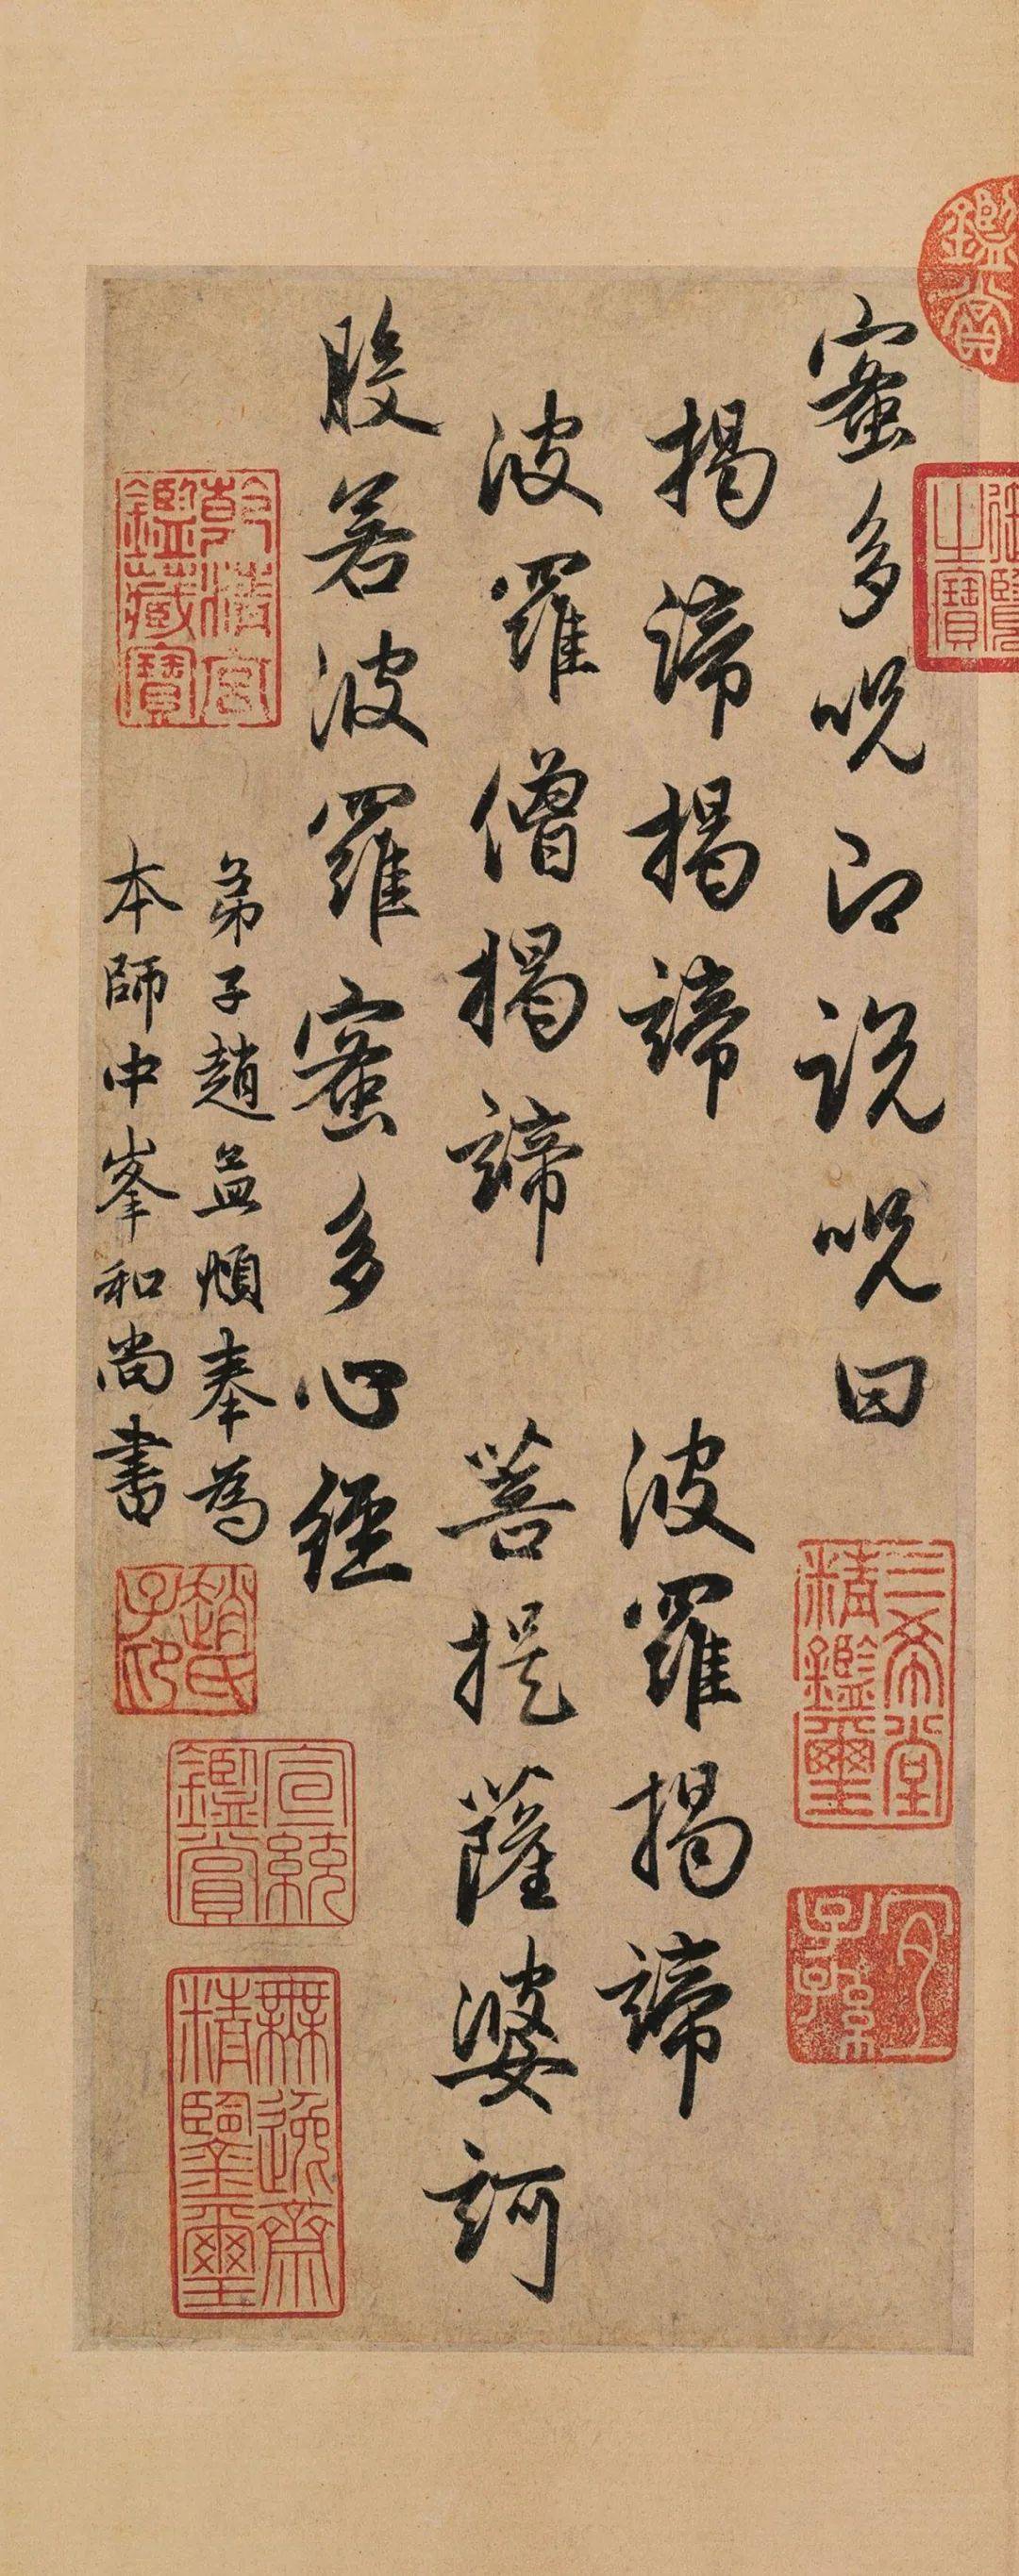 蜜多呪即說呪曰
揭諦揭諦　波羅揭諦
波羅僧揭諦　菩提薩婆訶
般若波羅蜜多心經
弟子趙孟頫奉為
本師中峯和尚書
鑑賞
御覽之寶
三希堂精鑑璽
宜子孫
乾清宮鑑藏寶
趙氏子昂
宣統鑑賞
無逸齋精鑒璽